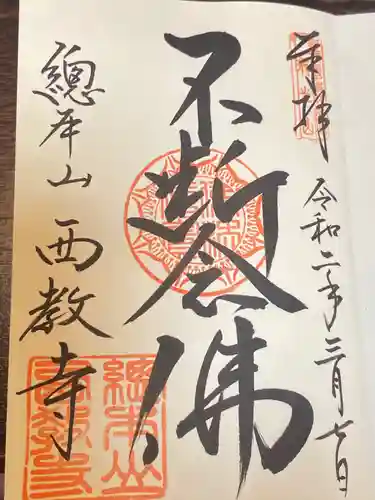 奉拝
令和二年三月七日
不断念佛
總本山
西教寺
總本山
西教寺